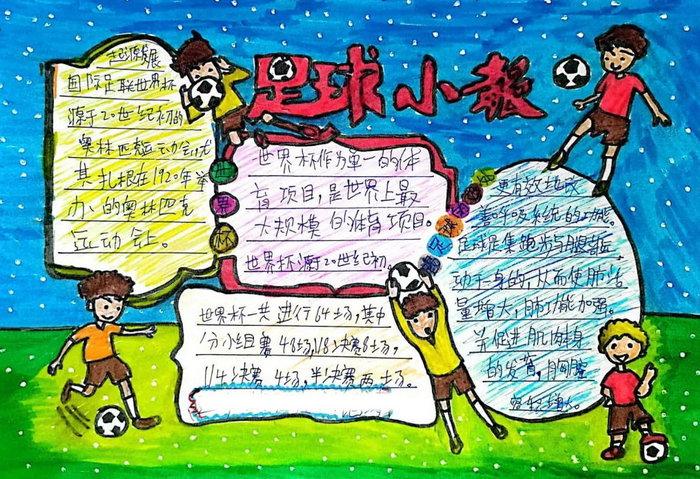 足球小报
起源发展
国际足联世界杯
源于20世纪初的
奥林匹克运动会式
其扎根在1920年举
办的奥林匹克
运动会上。
世
界
杯
世界杯作为单一的体
育项目,是世界上最
大规模的体育项目。
世界杯源于20世纪初。
世界杯一共进行64场,其中
分小组赛48场,1/8决赛8场,
1/4决赛4场,半决赛两场。
更有效地改
善呼吸系统的功能。
足球是集跑步与腿部
于一身的,从而使肺活
量增大,功能加强。
并促进肌肉身
的发育,胸腔